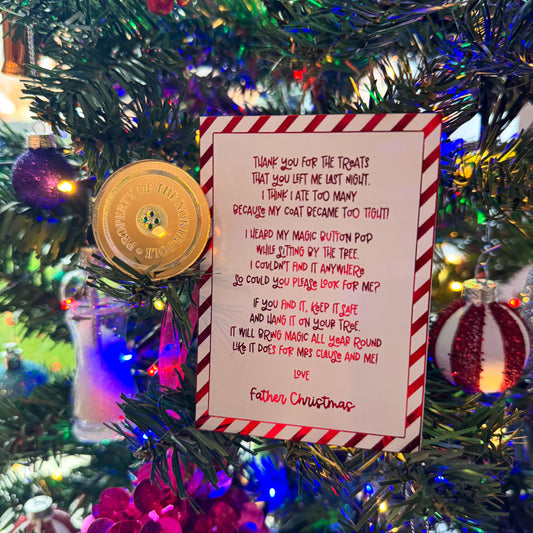 PROPERTY OF THE NORTH POLE
THANK YOU FOR THE TREATS
THAT YOU LEFT ME LAST NIGHT.
I THINK I ATE TOO MANY
BECAUSE MY COAT BECAME TOO TIGHT!
I HEARD MY MAGIC BUTTON POP
WHILE SITTING BY THE TREE.
I COULDN'T FIND IT ANYWHERE
SO COULD YOU PLEASE LOOK FOR ME?
IF YOU FIND IT, KEEP IT SAFE
AND HANG IT ON YOUR TREE.
IT WILL BRING MAGIC ALL YEAR ROUND
LIKE IT DOES FOR MRS CLAUSE AND ME!
LOVE
Father Christmas